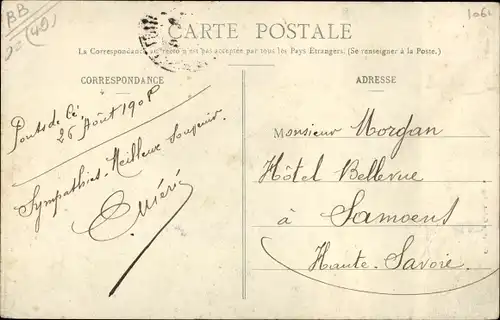 BB
(49)
1061
CARTE POSTALE
La Correspondance au recto n'est pas acceptée par tous les Pays Etrangers. (Se renseigner à la Poste.)
CORRESPONDANCE
Ponts de Cé,
26 Août 1908
Sympathies. Meilleur Souvenir.
ADRESSE
Monsieur Morgan
Hôtel Bellevue
à Samoens
Haute-Savoie